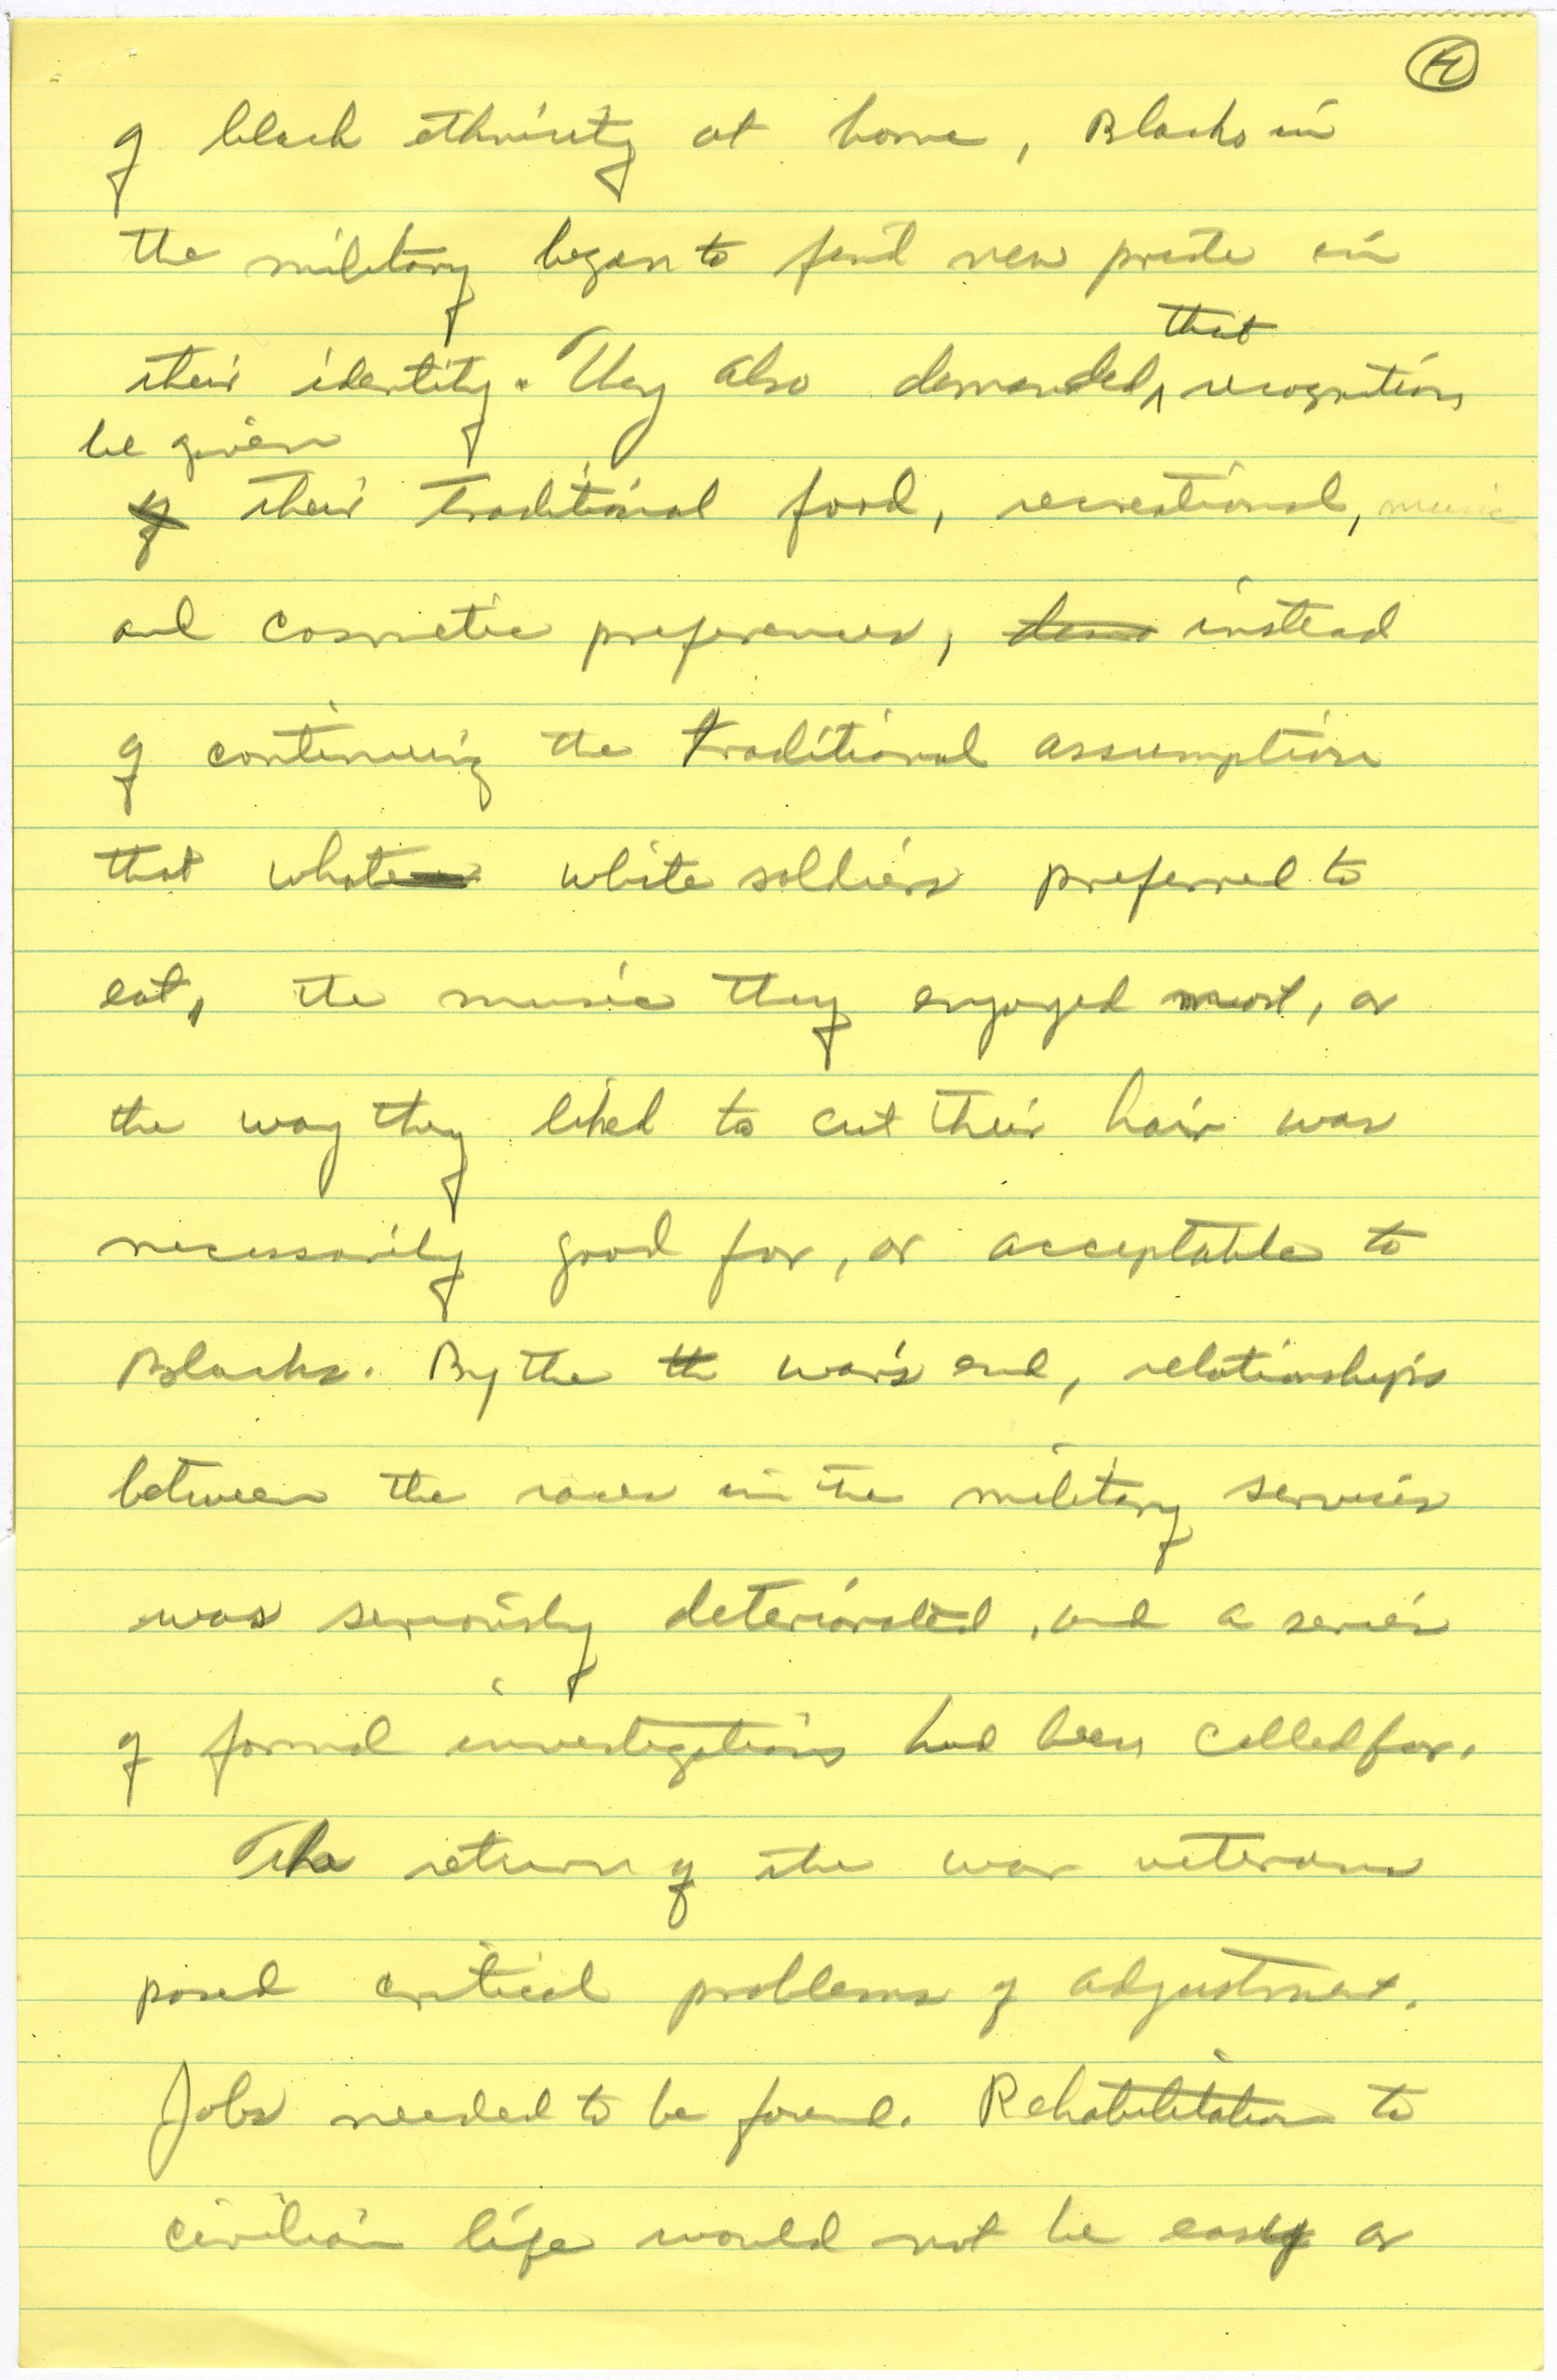 of black ethnicity at home, Blacks in
the military began to find new pride in
that
their identity. They also demanded recognition
be given
of their traditional food, recreational, music
and cosmetic preferences, instead
of continuing the traditional assumption
that what white soldiers preferred to
eat, the music they enjoyed most, or
the way they liked to cut their hair was
necessarily good for, or acceptable to
Blacks. By the th war's end, relationships
between the races in the military services
was seriously deteriorated, and a series
of formal investigations had been called for.
The return of the war veterans
posed critical problems of adjustment.
Jobs needed to be found. Rehabilitation to
civilian life would not be easy or